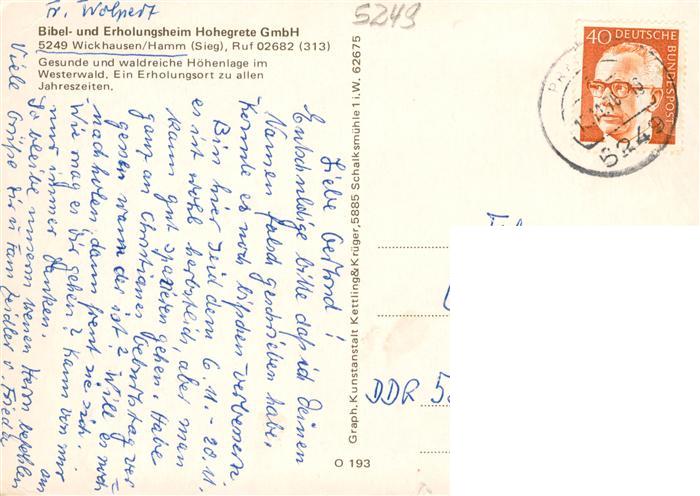 Fr. Wolpert
5249
Bibel- und Erholungsheim Hohegrete GmbH
5249 Wickhausen/Hamm (Sieg), Ruf 02682 (313)
Gesunde und waldreiche Höhenlage im
Westerwald. Ein Erholungsort zu allen
Jahreszeiten.
Liebe Gertrud!
Entschuldige bitte daß ich Deinen
Namen falsch geschrieben habe,
konnte es noch bißchen verbessern
Bin hier seid dem 6.11. - 20.11.
es ist wohl herbstlich, aber man
kann gut spazieren gehen. Habe
ganz an Christianes Geburtstag ver
gessen wann der ist? Will es noch
nachholen, dann freut sie sich.
Wie mag es Dir gehen? Kann von mir
nur immer danken. am
So bleibe unserm Herrn befohlen
Viele Grüße Dir u Fam v. Frieda
Graph. Kunstanstalt Kettling & Krüger, 5885 Schalksmühle 1 i. W. 62675
O 193
40 DEUTSCHE BUNDESPOST
5249
DDR 5